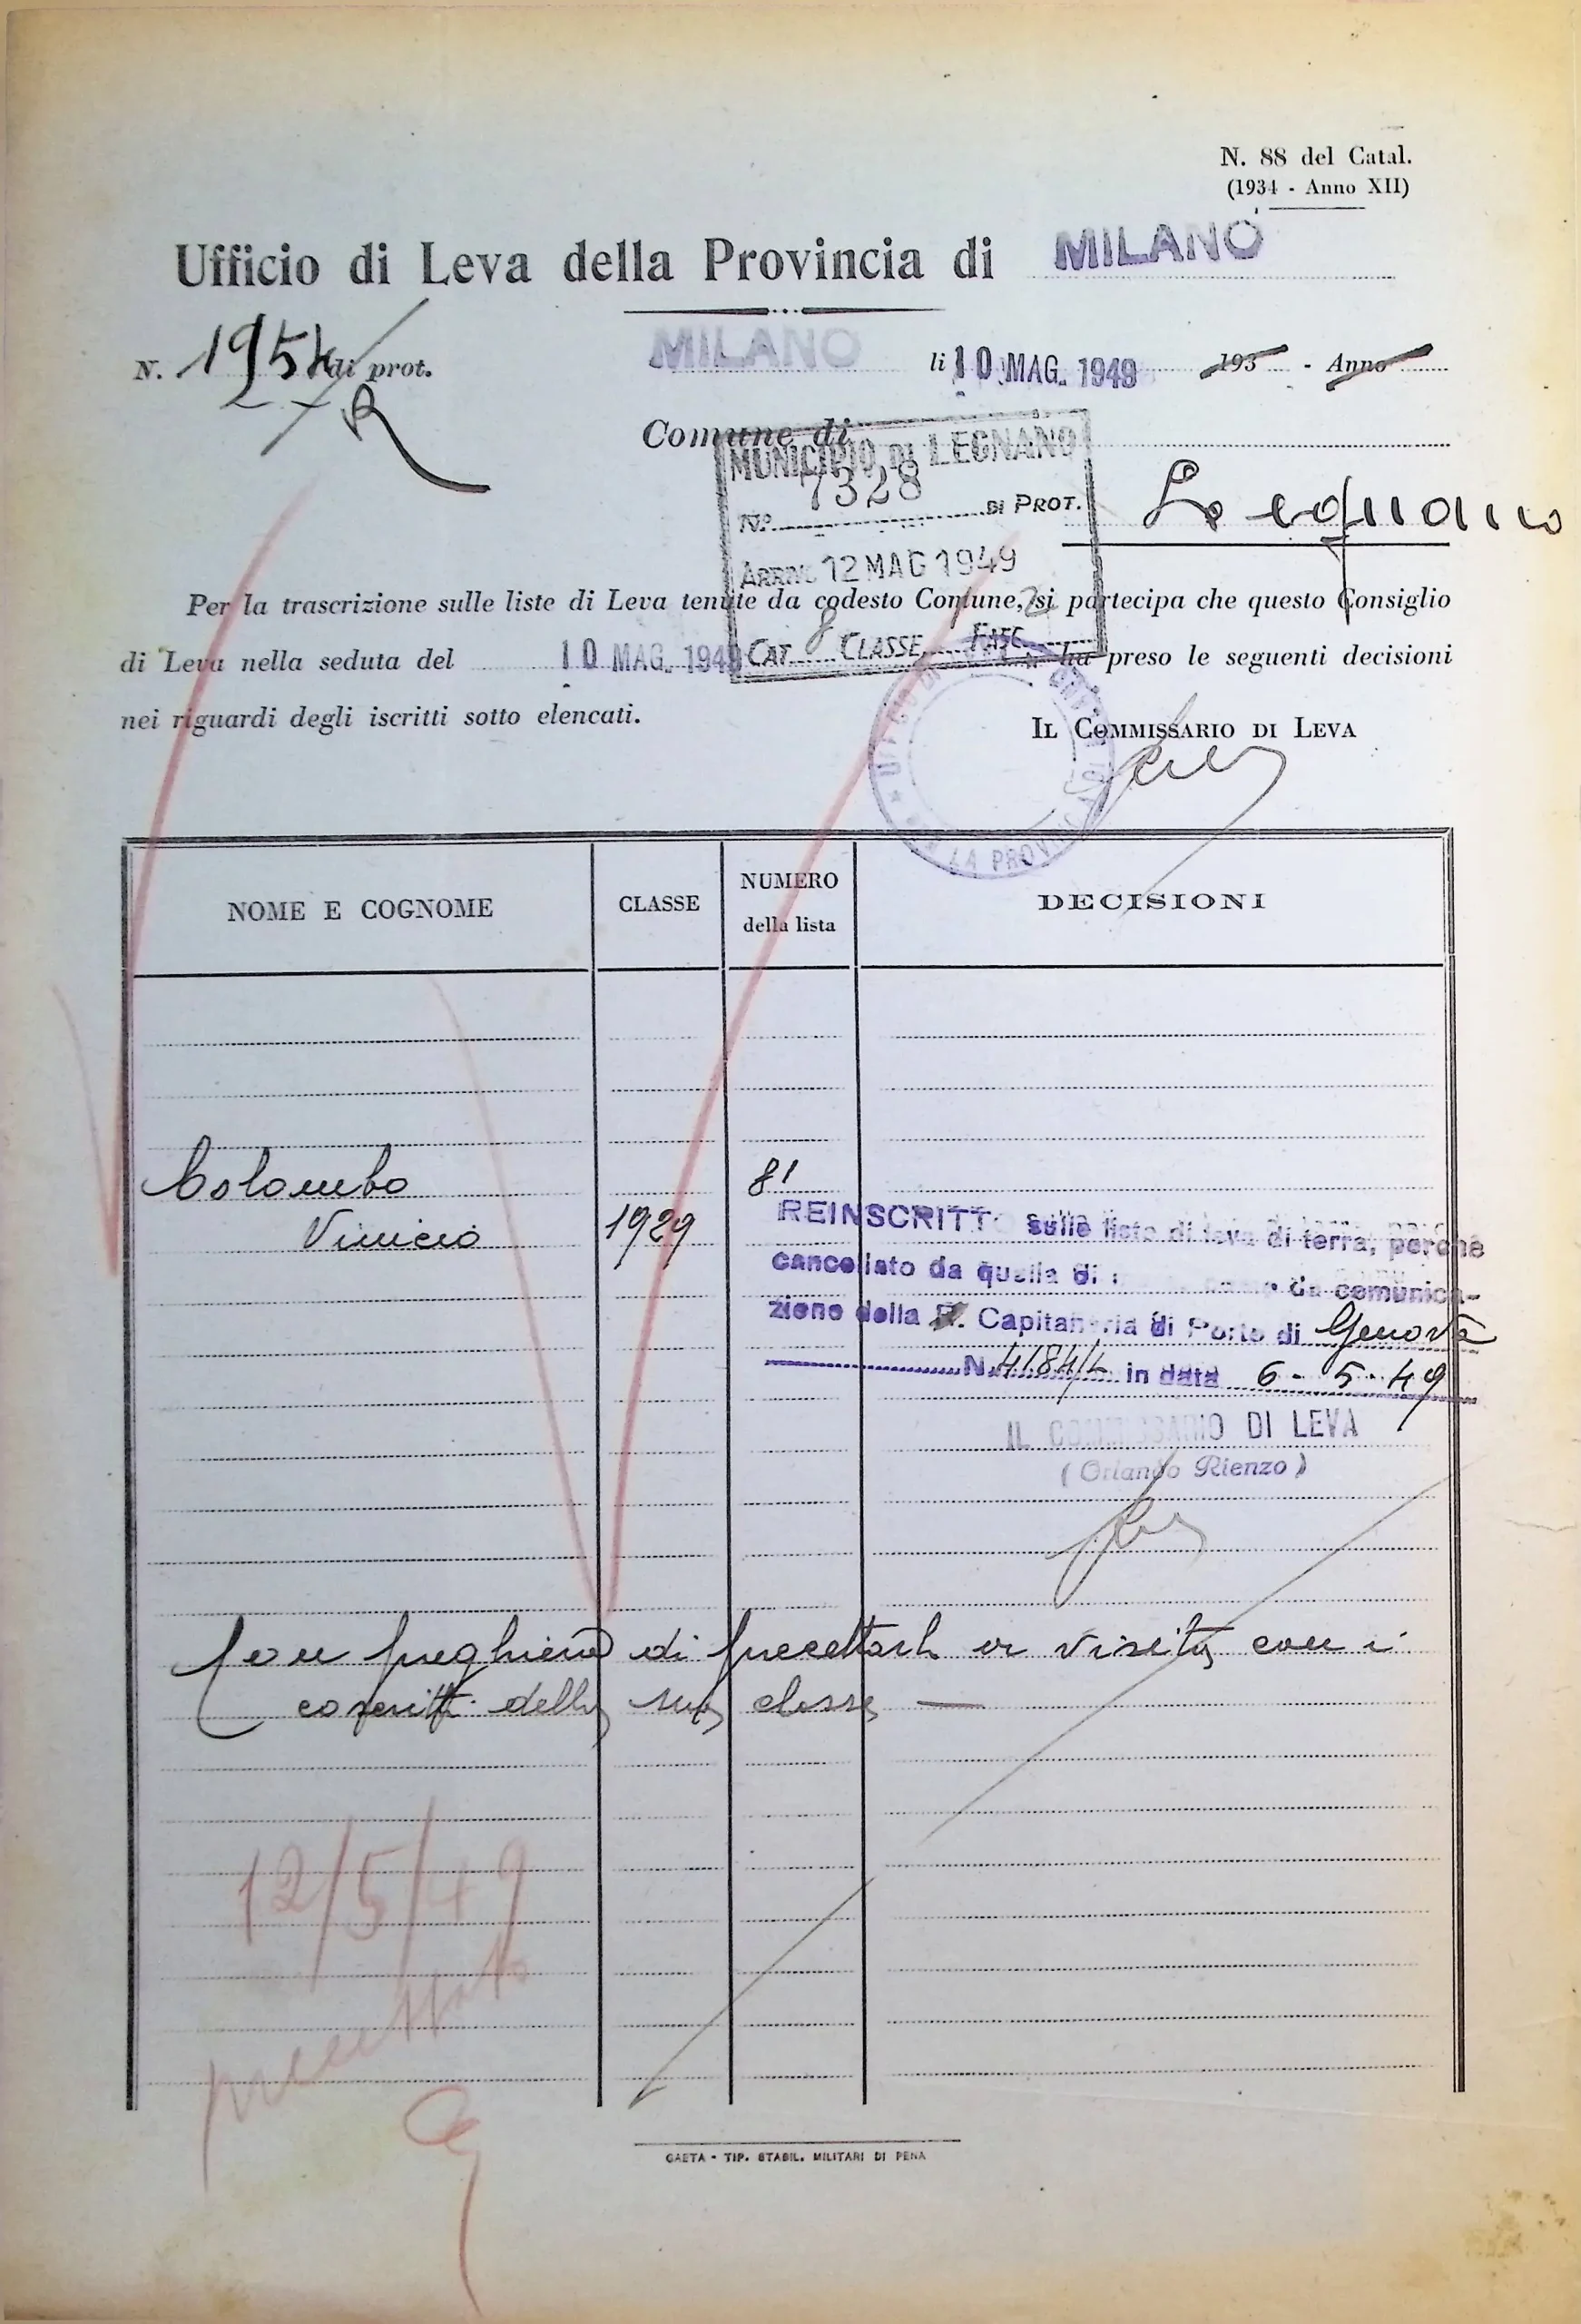 N. 88 del Catal.
(1934 - Anno XII)
Ufficio di Leva della Provincia di MILANO
N. 1954 di prot.
MILANO li 10 MAG. 1949 193 - Anno
2-R
Comune di
MUNICIPIO DI LEGNANO
No. 7328 DI PROT.
Legnano
ARRIVO 12 MAG 1949
CAT. 8 CLASSE 2 FASC.
Per la trascrizione sulle liste di Leva tenute da codesto Comune, si partecipa che questo Consiglio
di Leva nella seduta del 10 MAG. 1949 ha preso le seguenti decisioni
nei riguardi degli iscritti sotto elencati.
IL COMMISSARIO DI LEVA
LA PROVINC
NOME E COGNOME CLASSE NUMERO della lista DECISIONI
Colombo 81
Vinicio 1929
REINSCRITTO sulle liste di leva di terra, perchè
cancellato da quella di da comunica-
zione della R. Capitaneria di Porto di Genova
N. 4184/L in data 6-5-49
IL COMMISSARIO DI LEVA
(Orlando Rienzo)
Con preghiera di precettarlo a visita con i
coscritti della sua classe —
12/5/49
precettato
GAETA - TIP. STABIL. MILITARI DI PENA